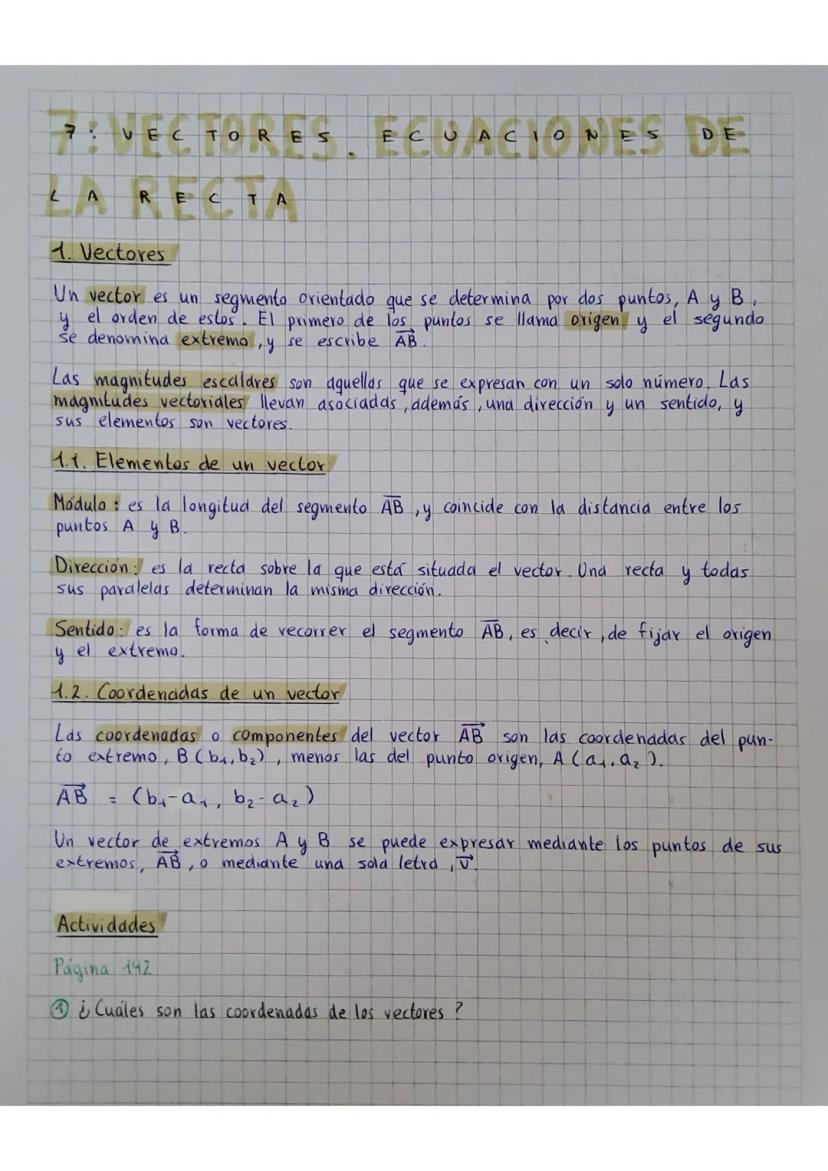 7: VECTORES. ECUACIONES DE
LA RECTA
1. Vectores
Un vector es un segmento orientado que se determina por dos puntos, A y B,
y el orden de estos. El primero de los puntos se llama origen y el segundo
se denomina extremo, y se escribe A⃗B⃗.
Las magnitudes escalares son aquellas que se expresan con un solo número. Las
magnitudes vectoriales llevan asociadas, además, una dirección y un sentido, y
sus elementos son vectores.
1.1. Elementos de un vector
Módulo: es la longitud del segmento A̅B̅, y coincide con la distancia entre los
puntos A y B.
Dirección: es la recta sobre la que está situada el vector. Una recta y todas
sus paralelas determinan la misma dirección.
Sentido: es la forma de recorrer el segmento A̅B̅, es decir, de fijar el origen
y el extremo.
1.2. Coordenadas de un vector
Las coordenadas o componentes del vector A⃗B⃗ son las coordenadas del pun-
to extremo, B(b₁, b₂), menos las del punto origen, A(a₁, a₂).
A⃗B⃗ = (b₁-a₁, b₂-a₂)
Un vector de extremos A y B se puede expresar mediante los puntos de sus
extremos, A⃗B⃗, o mediante una sola letra, v⃗.
Actividades
Página 142
① ¿Cuáles son las coordenadas de los vectores?